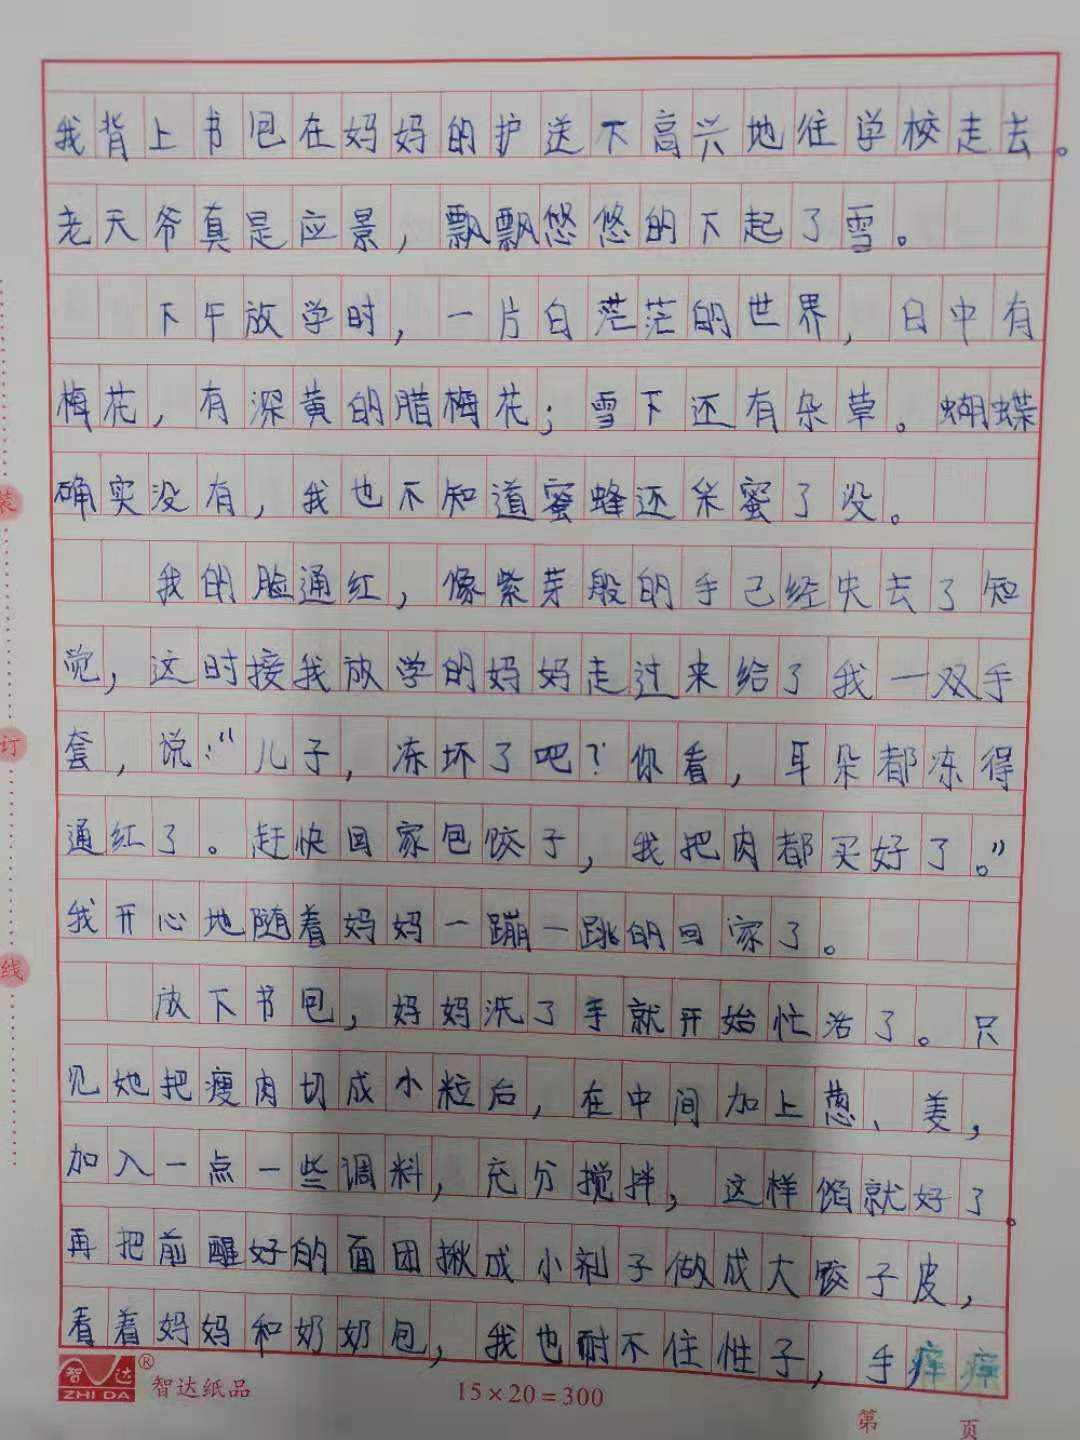 我背上书包在妈妈的护送下高兴地往学校走去。
老天爷真是应景，飘飘悠悠的下起了雪。
下午放学时，一片白茫茫的世界，白中有
梅花，有深黄的腊梅花；雪下还有杂草。蝴蝶
确实没有，我也不知道蜜蜂还采蜜了没。
我的脸通红，像紫芽般的手已经失去了知
觉，这时接我放学的妈妈走过来给了我一双手
套，说："儿子，冻坏了吧？你看，耳朵都冻得
通红了。赶快回家包饺子，我把肉都买好了。"
我开心地随着妈妈一蹦一跳的回家了。
放下书包，妈妈洗了手就开始忙活了。只
见她把瘦肉切成小粒后，在中间加上葱、姜，
加入一点一些调料，充分搅拌，这样馅就好了。
再把前醒好的面团揪成小剂子做成大饺子皮，
看着妈妈和奶奶包，我也耐不住性子，手痒痒
装
订
线
智达
ZHI DA
®
智达纸品
15×20=300
第 页